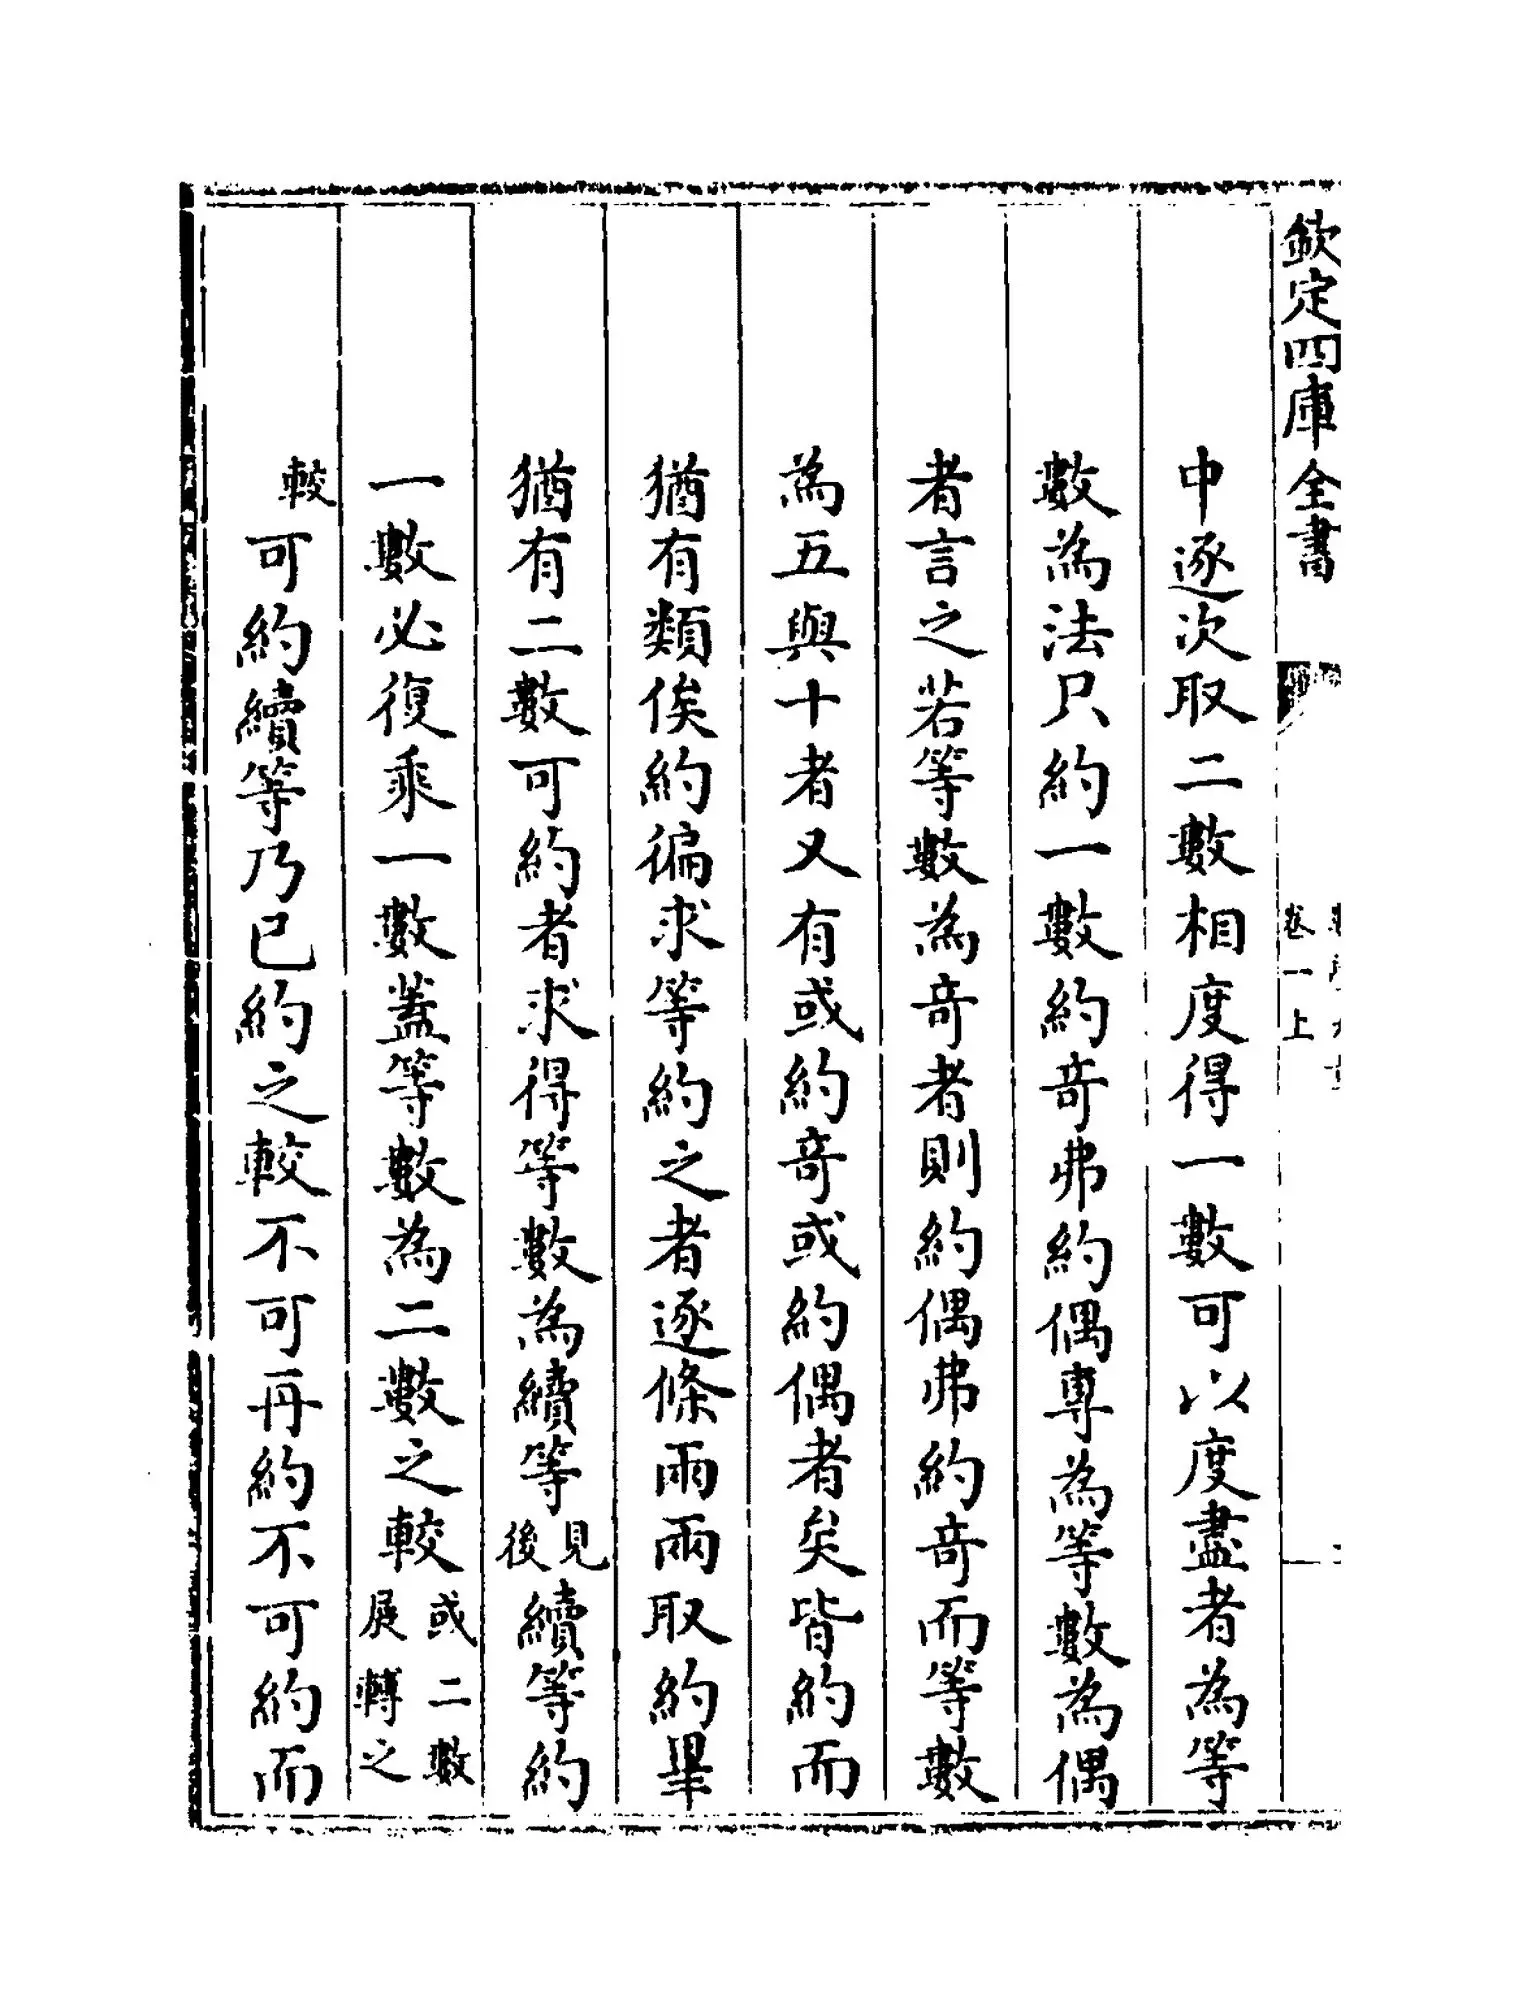 欽定四庫全書
卷一上
中逐次取二數相度得一數可以度盡者為等
數為法只約一數約奇弗約偶專為等數為偶
者言之若等數為奇者則約偶弗約奇而等數
為五與十者又有或約奇或約偶者矣皆約而
猶有類俟約徧求等約之者逐條兩兩取約畢
猶有二數可約者求得等數為續等見後續等約
一數必復乘一數蓋等數為二數之較或二數展轉之
較可約續等乃已約之較不可再約不可約而